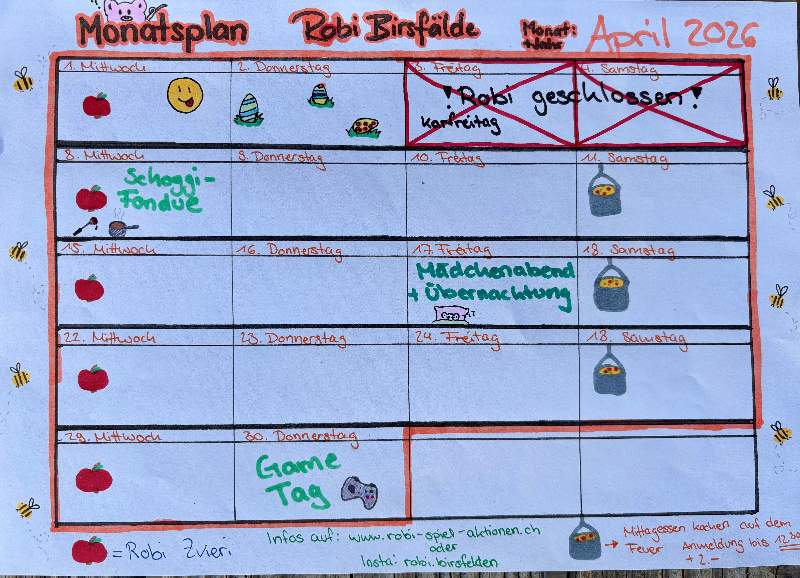 Monatsplan Robi Birsfälde Monat: + Jahr April 2026
1. Mittwoch 2. Donnerstag 3. Freitag 4. Samstag
! Robi geschlossen !
Karfreitag
8. Mittwoch 9. Donnerstag 10. Freitag 11. Samstag
Schoggi-
Fondue
15. Mittwoch 16. Donnerstag 17. Freitag 18. Samstag
Mädchenabend
+ Übernachtung
22. Mittwoch 23. Donnerstag 24. Freitag 18. Samstag
29. Mittwoch 30. Donnerstag
Game
Tag
= Robi Zvieri
Infos auf: www.robi-spiel-aktionen.ch
oder
Insta: robi.birsfelden
→ Mittagessen kochen auf dem
Feuer Anmeldung bis 12.30
+ 2.-